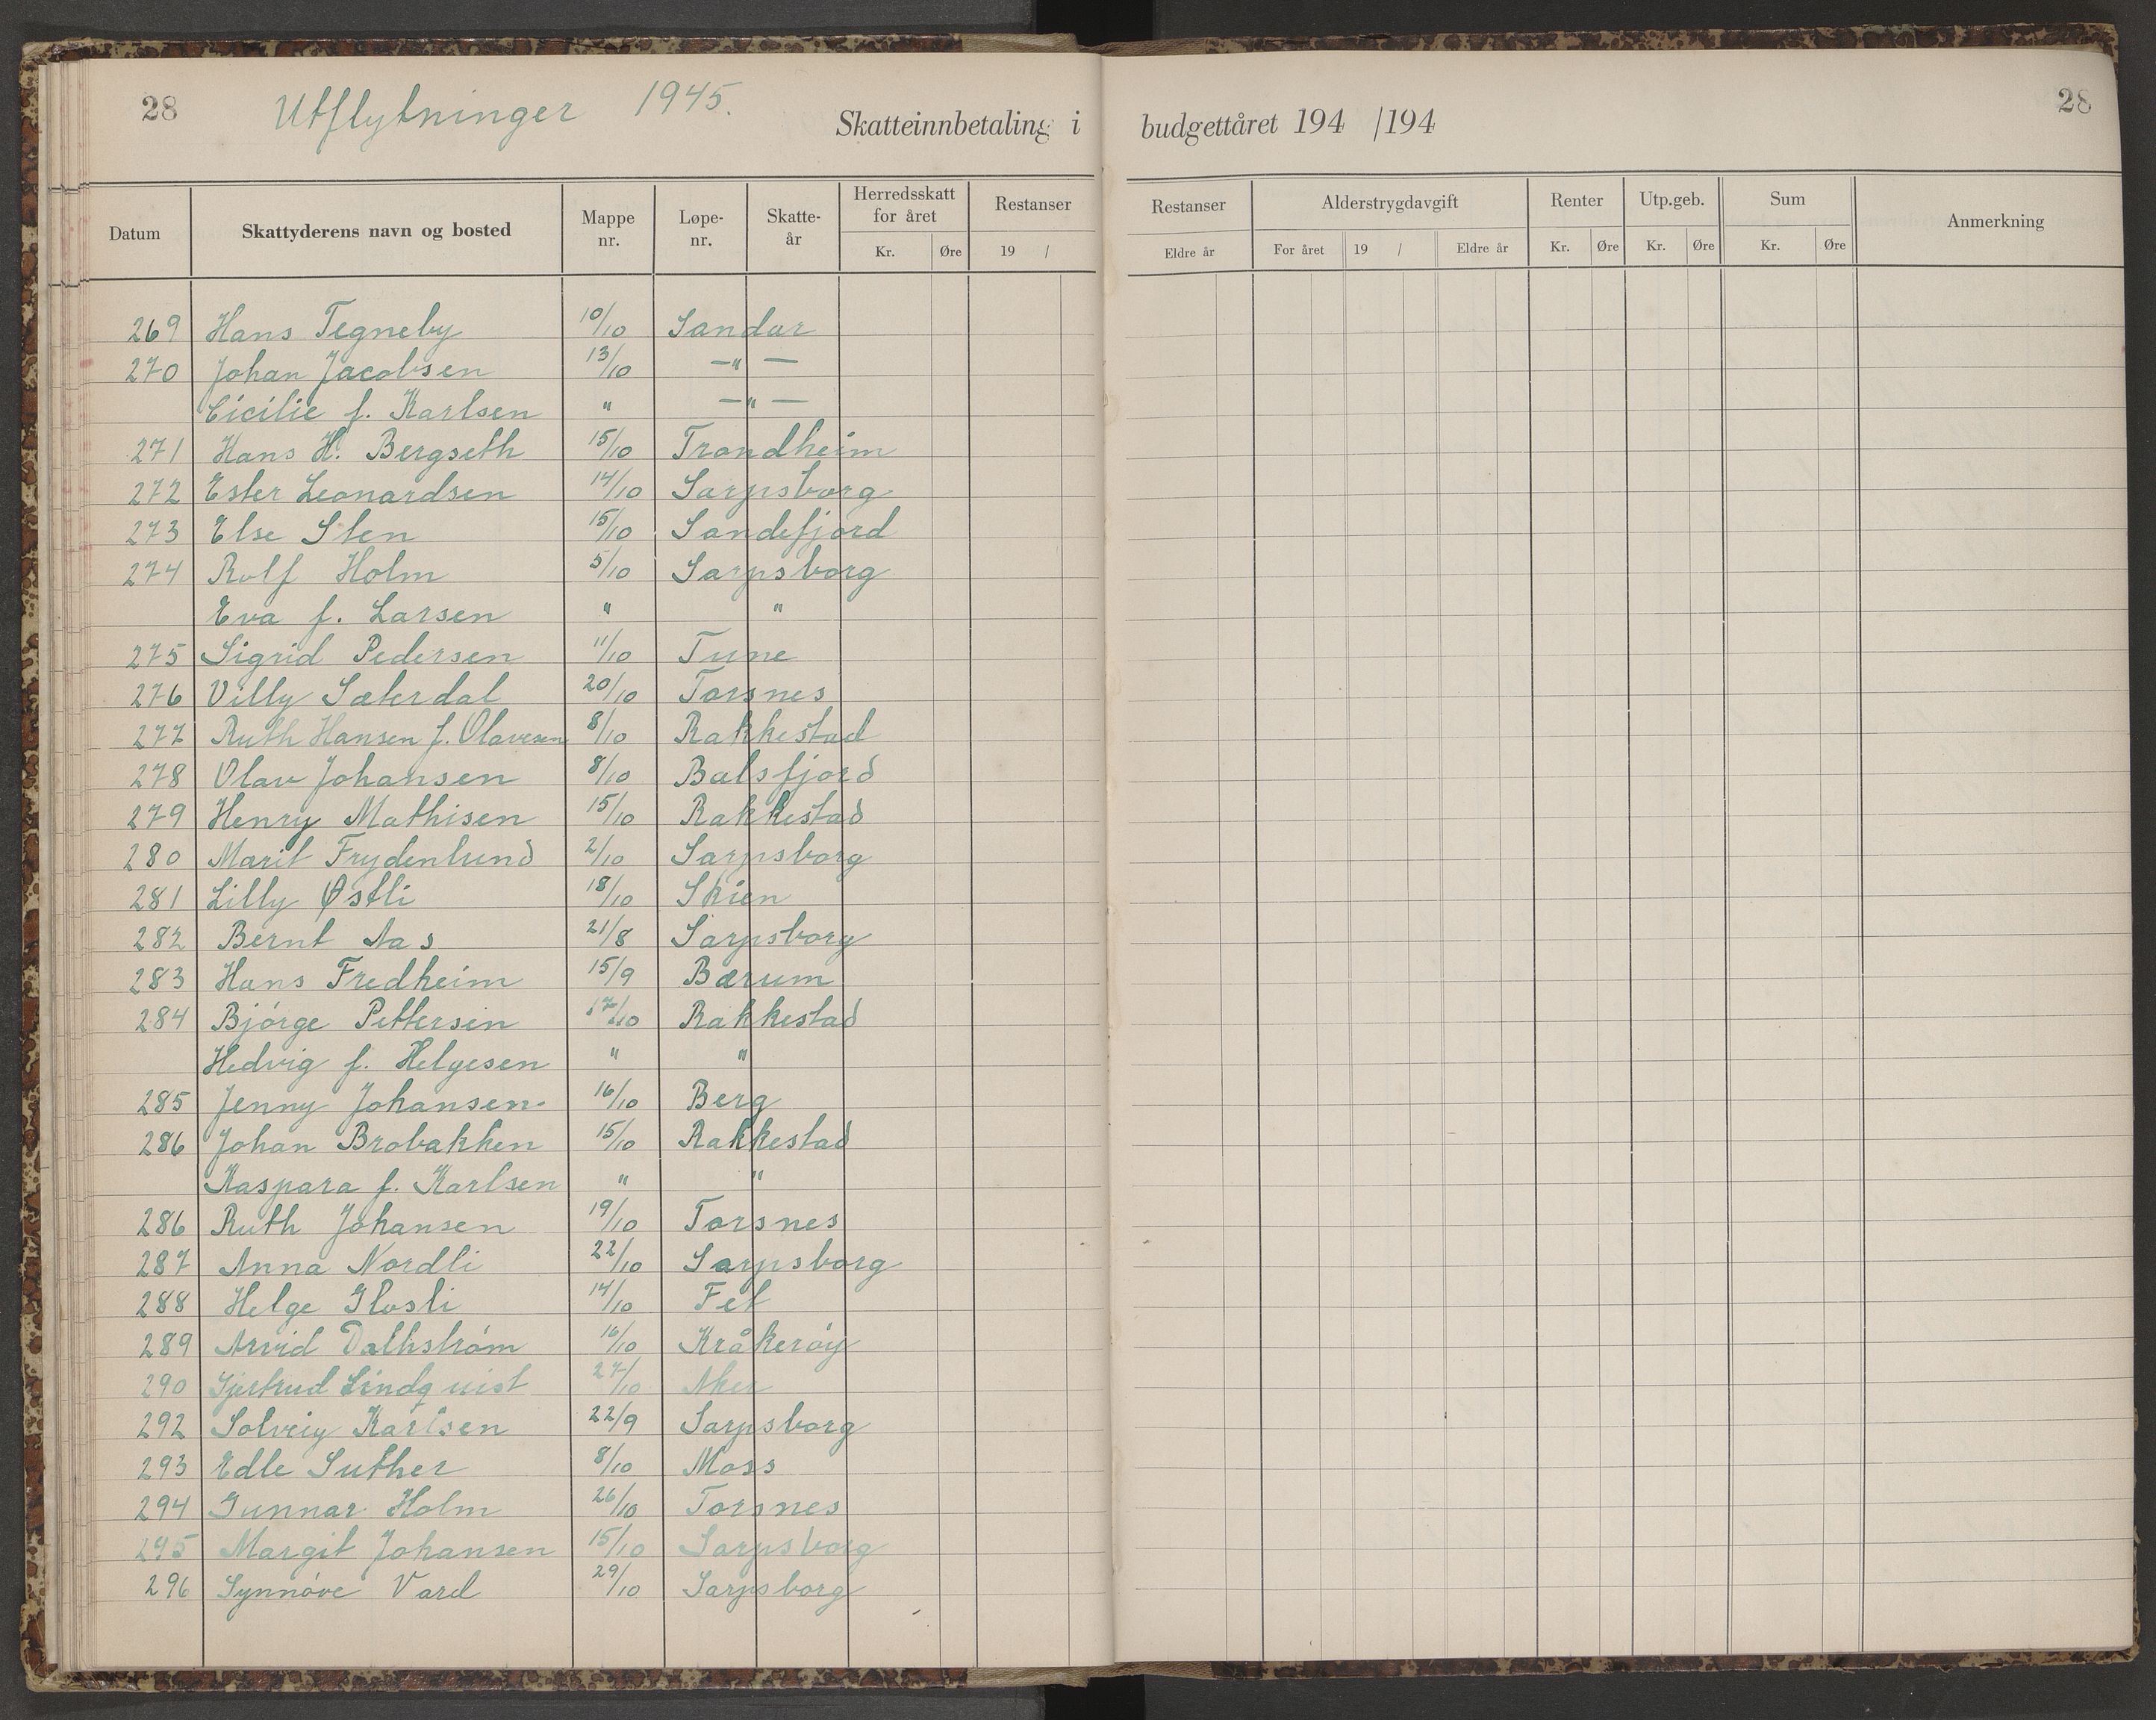 28 Utflytninger 1945. Skatteinnbetaling i budgettåret 194 /194 28
Datum Skattyderens navn og bosted Mappe nr. Løpe-nr. Skatte-år Herredsskatt for året Kr. Øre Restanser 19 / Restanser Eldre år Alderstrygdavgift For året 19 / Eldre år Renter Kr. Øre Utp.geb. Kr. Øre Sum Kr. Øre Anmerkning
269 Hans Tegneby 10/10 Sandar
270 Johan Jacobsen 13/10 —"—
Cicilie f. Karlsen " —"—
271 Hans H. Bergseth 15/10 Trondheim
272 Ester Leonardsen 14/10 Sarpsborg
273 Else Sten 15/10 Sandefjord
274 Rolf Holm 5/10 Sarpsborg
Eva f. Larsen " "
275 Sigrid Pedersen 11/10 Tune
276 Villy Sæterdal 20/10 Torsnes
277 Ruth Hansen f. Olavesen 8/10 Rakkestad
278 Olav Johansen 8/10 Balsfjord
279 Henry Mathisen 15/10 Rakkestad
280 Marit Frydenlund 2/10 Sarpsborg
281 Lilly Østli 18/10 Skien
282 Bernt Aas 21/8 Sarpsborg
283 Hans Fredheim 15/9 Bærum
284 Bjørge Pettersen 17/10 Rakkestad
Hedvig f. Helgesen " "
285 Jenny Johansen. 16/10 Berg
286 Johan Brobakken 15/10 Rakkestad
Kaspara f. Karlsen " "
286 Ruth Johansen 19/10 Torsnes
287 Anna Nordli 22/10 Sarpsborg
288 Helge Glosli 14/10 Fet
289 Arvid Dalhstrøm 16/10 Kråkerøy
290 Gjertrud Lindquist 27/10 Aker
292 Solveig Karlsen 22/9 Sarpsborg
293 Edle Suther 8/10 Moss
294 Gunnar Holm 26/10 Torsnes
295 Margit Johansen 15/10 Sarpsborg
296 Synnøve Vard 29/10 Sarpsborg